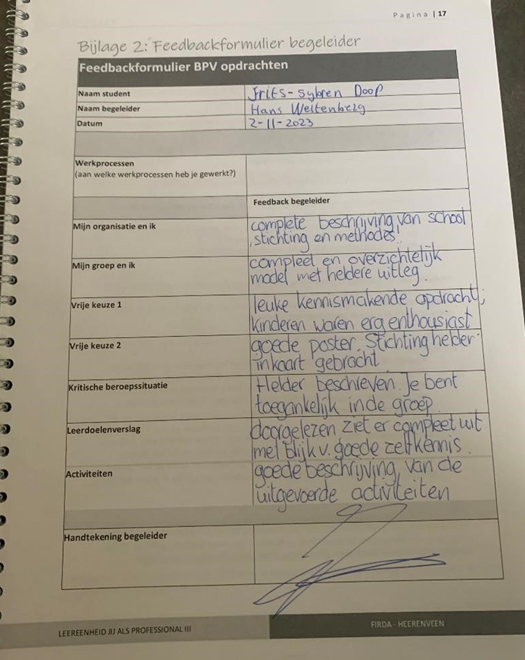 Pagina | 17
Bijlage 2: Feedbackformulier begeleider
Feedbackformulier BPV opdrachten
Naam student Frits-Sybren Doop
Naam begeleider Hans Weltenberg
Datum 2-11-2023
Werkprocessen
(aan welke werkprocessen heb je gewerkt?)
Feedback begeleider
Mijn organisatie en ik complete beschrijving van school
,stichting en methodes.
Mijn groep en ik compleet en overzichtelijk
model met heldere uitleg.
Vrije keuze 1 leuke kennismakende opdracht,
kinderen waren erg enthousiast
Vrije keuze 2 goede poster. Stichting helder
in kaart gebracht.
Kritische beroepssituatie Helder beschreven. Je bent
toegankelijk in de groep.
Leerdoelenverslag doorgelezen ziet er compleet uit
met blijk v. goede zelfkennis.
Activiteiten goede beschrijving van de
uitgevoerde activiteiten
Handtekening begeleider
LEEREENHEID JIJ ALS PROFESSIONAL III
FIRDA - HEERENVEEN